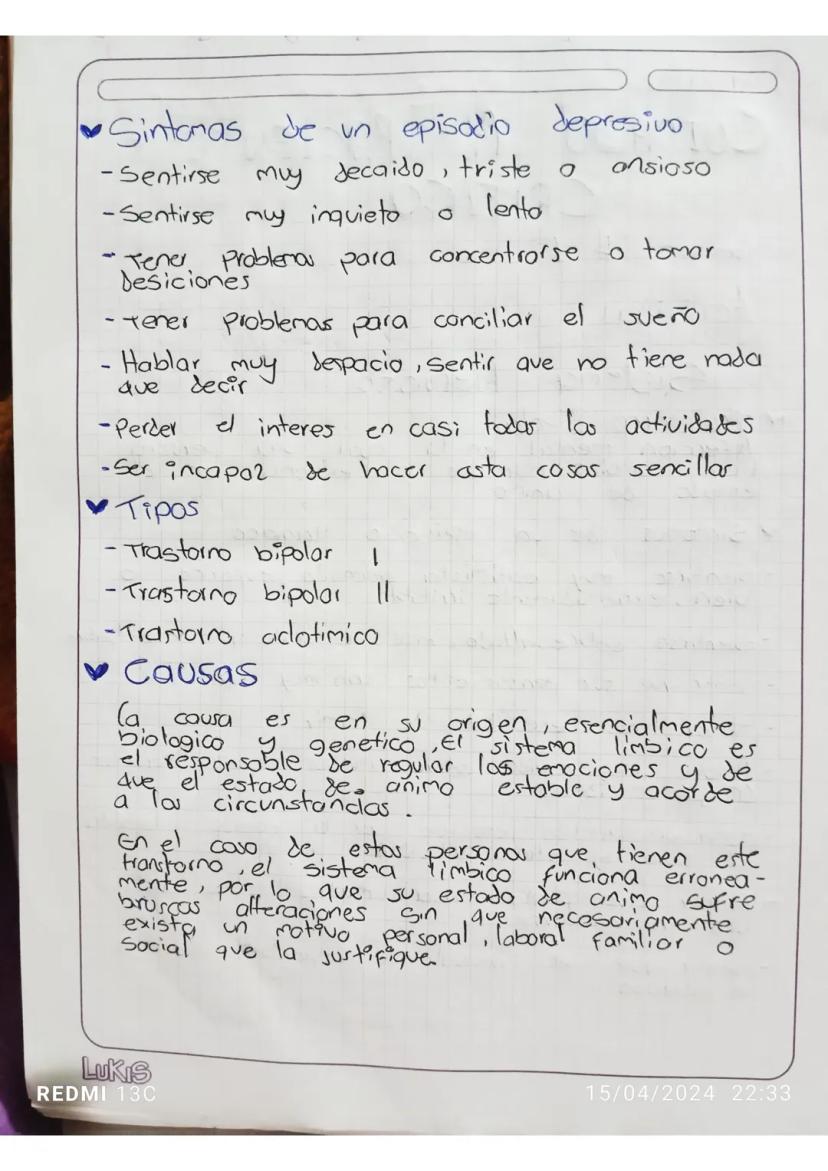 Sintomas de un episodio depresivo
- Sentirse muy decaido, triste o ansioso
- Sentirse muy inquieto o lento
- Tener problema para concentrarse o tomar
Desiciones
- Tener problemas para conciliar el sueño
- Hablar muy despacio, sentir que no tiene nada
que decir
- Perder el interes en casi todas las actividades
- Ser incapaz de hacer asta cosas sencillas
Tipos
- Trastorno bipolar I
- Trastorno bipolar II
- Trastorno aclotimico
Causas
La causa es en su origen, esencialmente
biologico y genetico, El sistema limbico es
el responsable de regular las emociones y de
que el estado de animo estable y acorde
a las circunstancias.
En el caso de estas personas que tienen este
transtorno, el sistema limbico funciona erronea-
mente, por lo que su estado de animo sufre
bruscas alteraciones sin que necesariamente
exista un motivo personal, laboral familiar o
social que la justifique.
LUKIS
REDMI 13C
15/04/2024 22:33